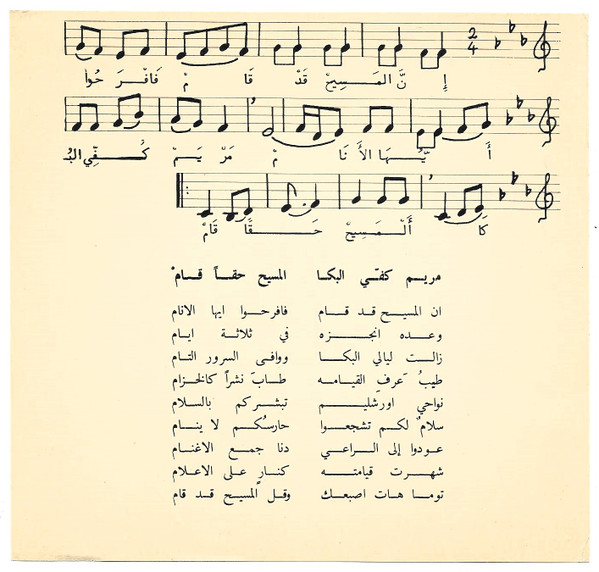 2 4
إِ نَّ المَـسِيحَ قَدْ قَا مْ فَافْـرَ حُوا
أَ يُّـهَا الأَ نَا مْ مَرْ يَـمْ كُـفِّي البُـ
كَا أَلْـمَـسِيحُ حَـقًّا قَامْ
مريـم كفـّي البكـا المسيح حقـاً قـام
ان المسيـح قد قـام فافرحـوا ايها الانام
وعـده انجـزه في ثلاثـة ايـام
زالـت ليالي البكـا ووافـى السرور التـام
طيبُ عَرفِ القيامـه طـابَ نشراً كالخزام
نواحي اورشليـم تبشركم بالسـلام
سلامٌ لكـم تشجعـوا حارسُكـم لا ينـام
عـودوا إلى الـراعـي دنا جمـع الاغنـام
شهـرت قيامتـه كنـارٍ علـى الاعلام
تومـا هـات اصبعـك وقـل المسيـح قـد قام